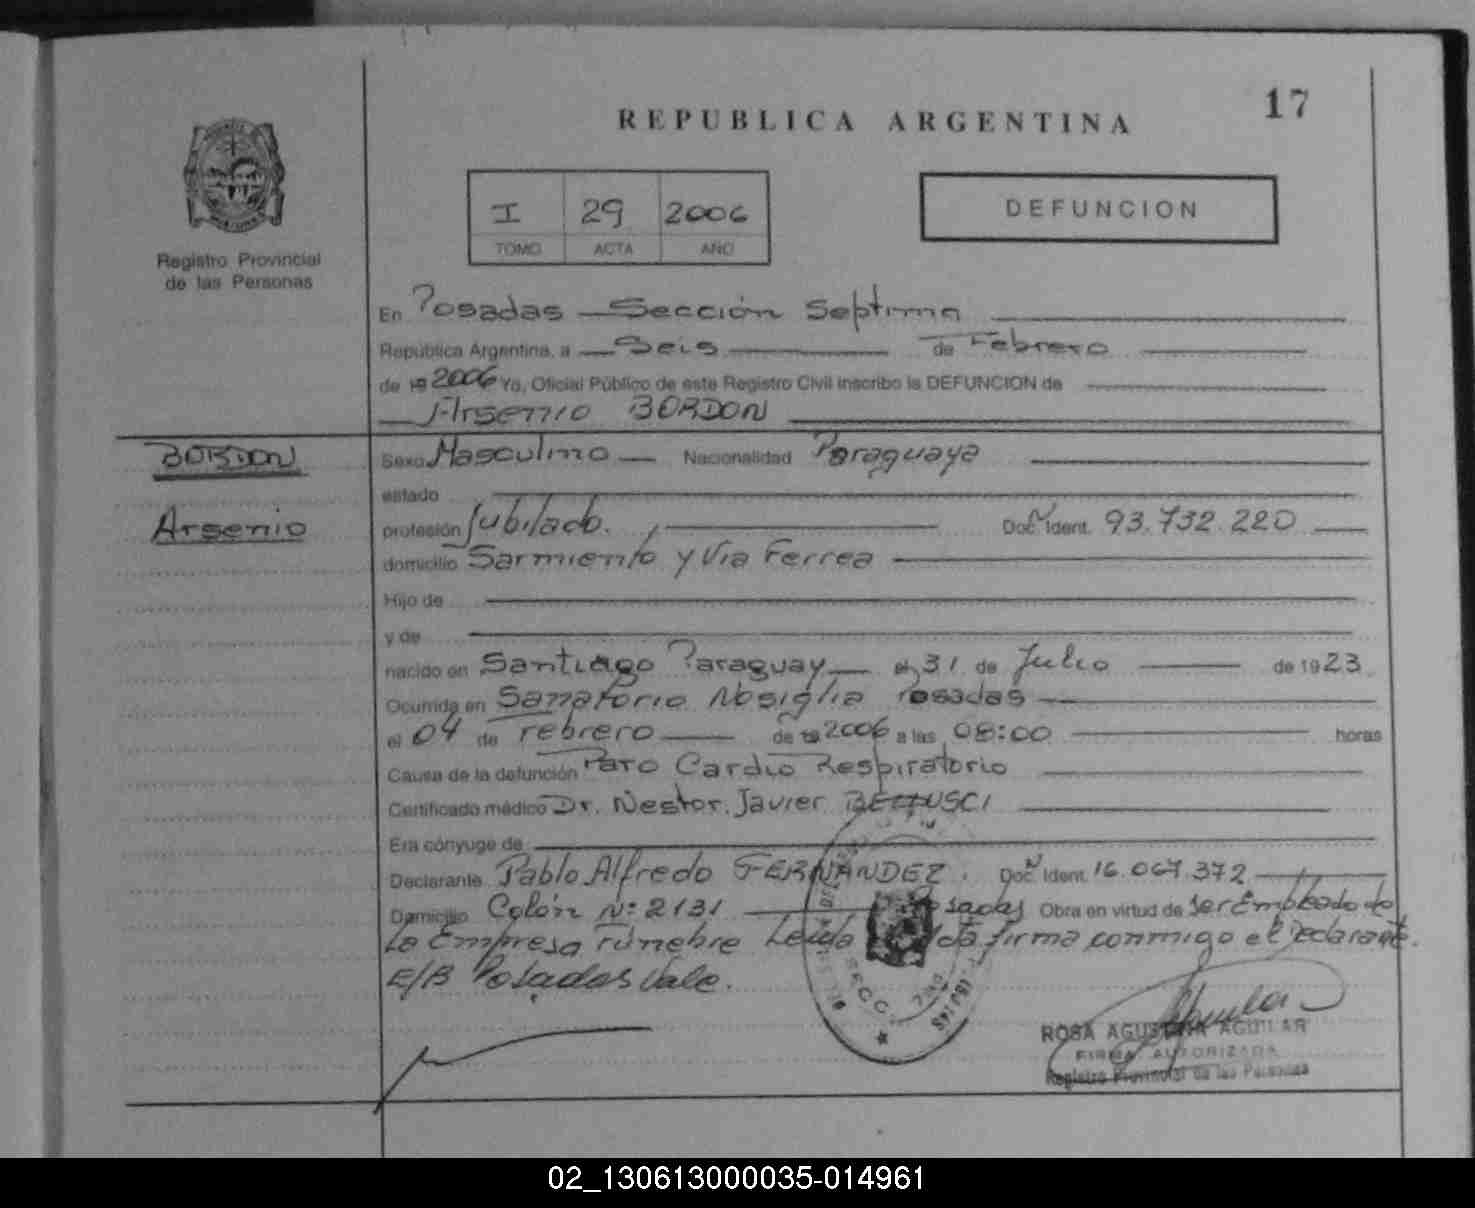 17
REPUBLICA ARGENTINA
I 29 2006
TOMO ACTA AÑO
DEFUNCION
Registro Provincial
de las Personas
En Posadas Sección Septima
República Argentina, a Seis de Febrero
de 19 2006 Yo, Oficial Público de este Registro Civil inscribo la DEFUNCION de
Arsenio BORDON
BORDON
Arsenio
Sexo Masculino Nacionalidad Paraguaya
estado
profesión Jubilado. Doc. Ident. 93.732.220
domicilio Sarmiento y Via Ferrea
Hijo de
y de
nacido en Santiago Paraguay el 31 de Julio de 1923
Ocurrida en Sanatorio Nosiglia Posadas
el 04 de Febrero de 19 2006 a las 08:00 horas
Causa de la defunción Paro Cardio Respiratorio
Certificado médico Dr. Nestor Javier
Era cónyuge de
Declarante Pablo Alfredo FERNANDEZ. Doc. Ident. 16.067.372
Domicilio Colón Nº 2131 Posadas Obra en virtud de ser Empleado de
La Empresa Fúnebre Leida firma conmigo el Declarante.
E/B Posadas Vale.
ROSA AGUSTINA AGUILAR
FIRMA AUTORIZADA
Registro Provincial de las Personas
02_130613000035-014961